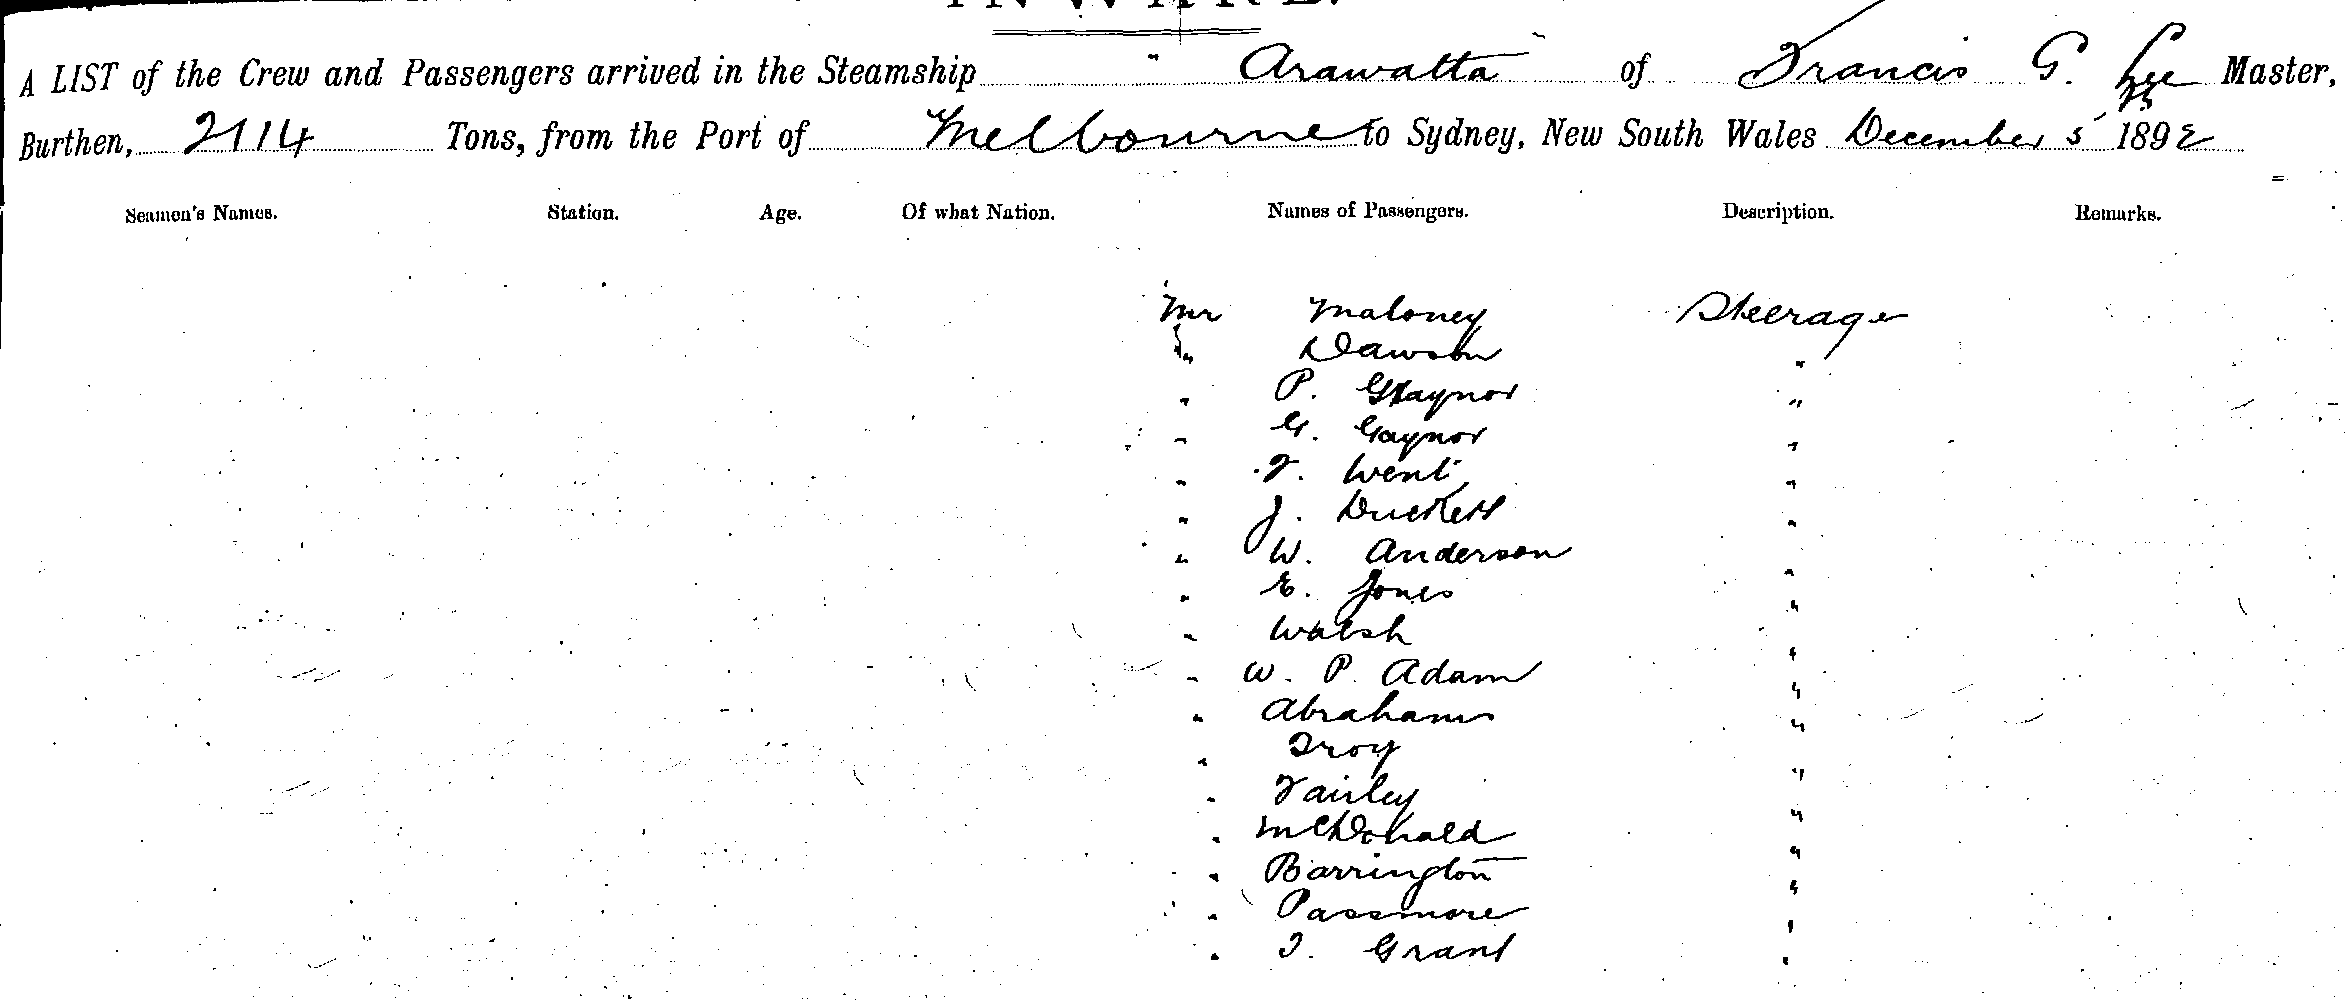 INWARD.
A LIST of the Crew and Passengers arrived in the Steamship "Arawatta" of Francis G. Lee Master,
Burthen, 2114 Tons, from the Port of Melbourne to Sydney, New South Wales December 5 1892
Seamen's Names. Station. Age. Of what Nation. Names of Passengers. Description. Remarks.
Mr Maloney Steerage
" Dawson "
" P. Gaynor "
" G. Gaynor "
" F. Went "
" J. Duckett "
" W. Anderson "
" E. Jones "
" Walsh "
" W. P. Adam "
" Abrahams "
" Troy "
" Fairley "
" McDonald "
" Barrington "
" Passmore "
" T. Grant "